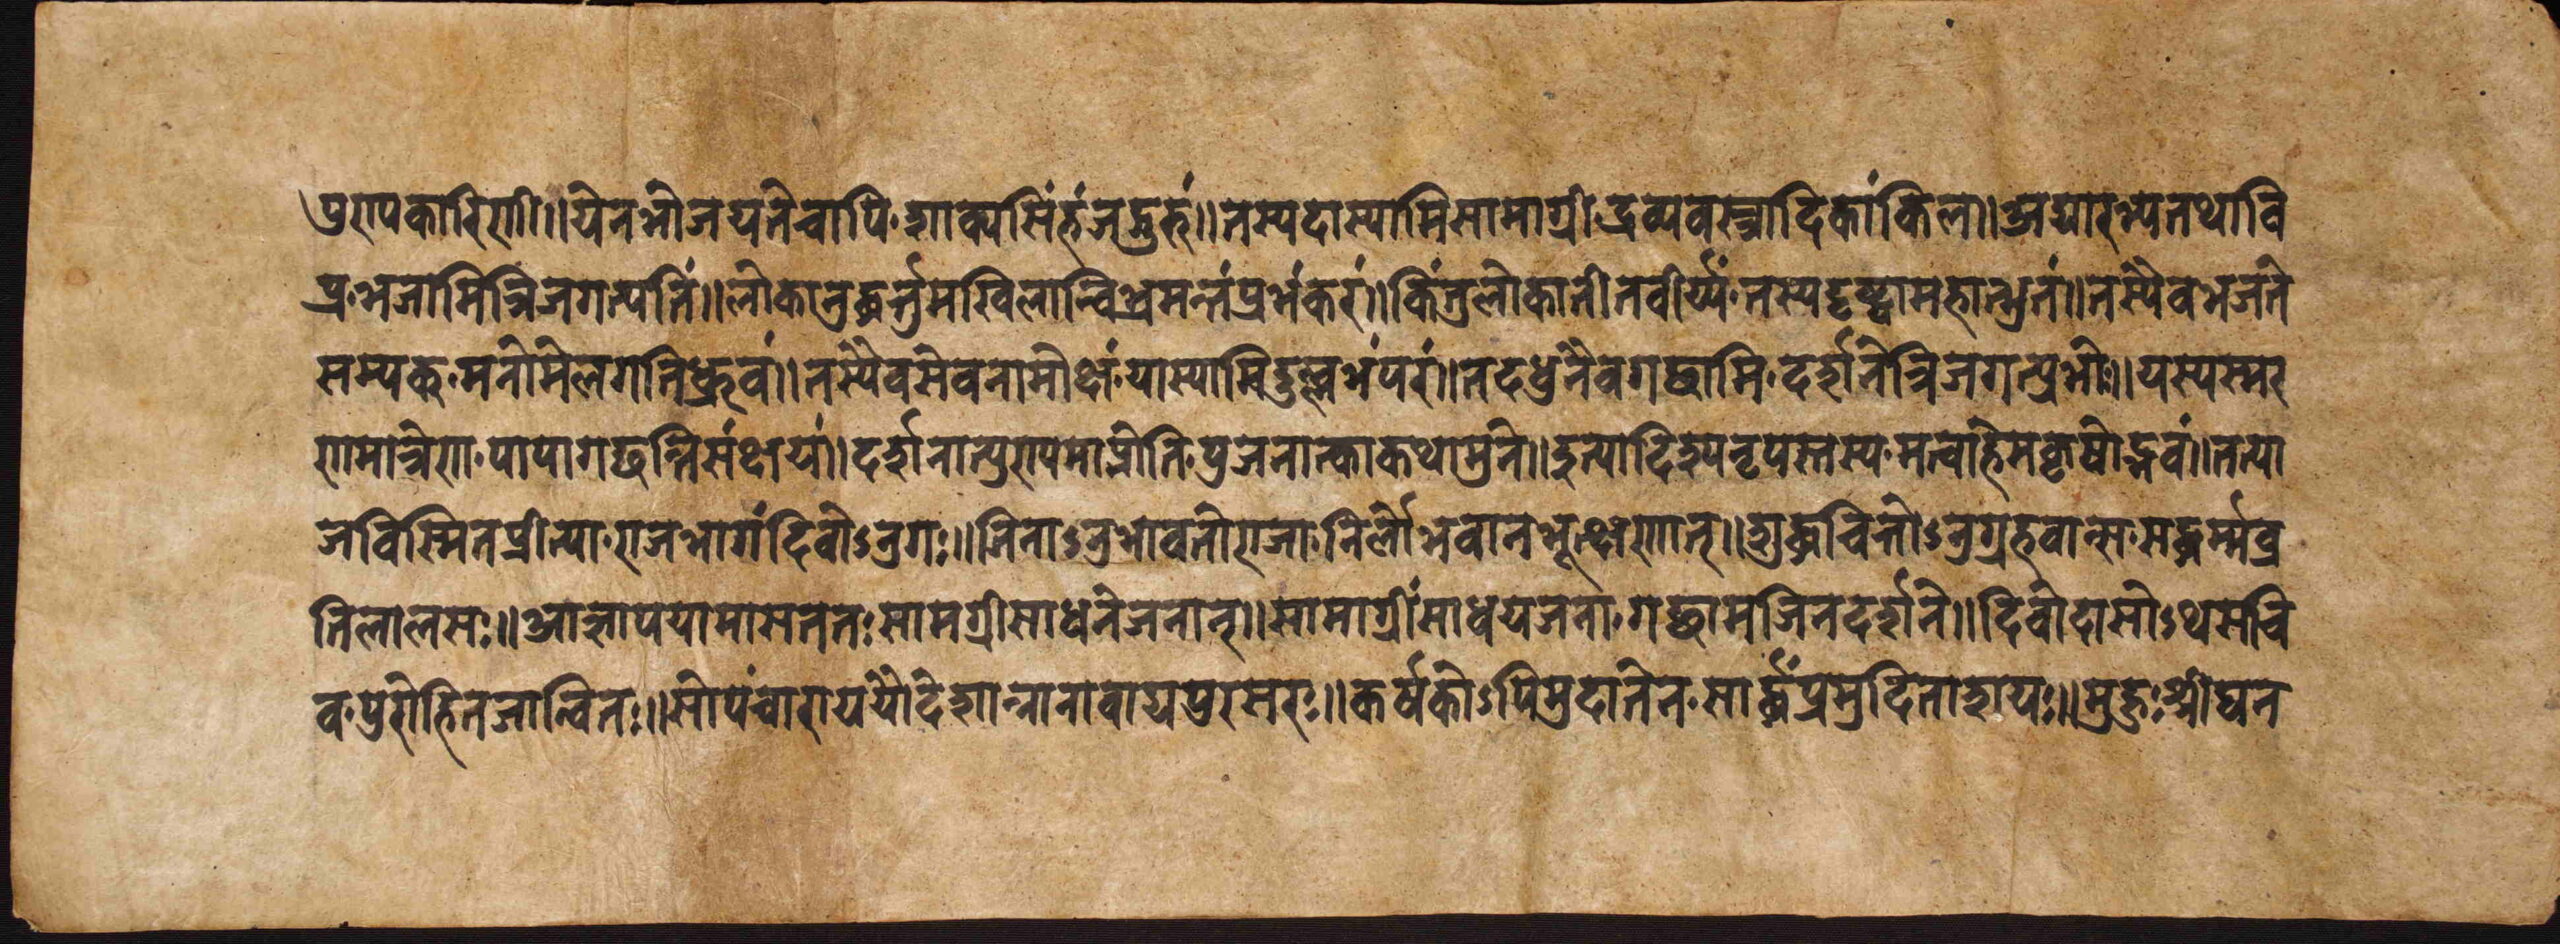 पुण्यकारिणी॥ येन भो जयते चापि, शाक्यसिंहं जगद्गुरुं॥ तस्य दास्यामि सामाग्री द्रव्यवस्त्रादिकां किल॥ अद्यारभ्य तथा वि
प्र, भजामि त्रिजगत्पतिं॥ लोकानुद्धर्त्तुमखिलान्विभ्रमन्तं प्रभंकरं॥ किंतु लोकातीतवीर्य्यं, तस्य दृष्ट्वा महाद्भुतं॥ तस्यैव भजने
सम्यक्, मनो मे लगति ध्रुवं॥ तस्यैव सेवनामोक्षं, यास्यामि दुल्लभं परं॥ तदधुनैव गच्छामि, दर्शने त्रिजगत्प्रभोः॥ यस्य स्मर
णमात्रेण, पापा गछन्ति संक्षयां॥ दर्शनात्पुण्यमाप्नोति, पुजनात्का कथा मुने॥ इत्यादिश्य नृपस्तस्य, मत्वा हेमकृषोद्भवं॥ तत्या
ज विस्मित प्रीत्या, राजभागं दिवोऽनुगः॥ तेनाऽनुभावतो राजा, निर्लोभवानभूत्क्षणात्॥ शुद्धचित्तोऽनुग्रहवान्स, सद्धर्म्मव्र
तिलालसः॥ आज्ञापयामास ततः सामग्रीसाधने जनान्॥ सामाग्रीं साधय जना, गच्छाम जिनदर्शने॥ दिवोदासोऽथ सचि
व, पुरोहितजान्वितः॥ सोपंचारा ययौ देशान्नानावाद्यपुरसरः॥ कर्षकोऽपि मुदा तेन, सार्द्धं प्रमुदिताशयः॥ मुहुः श्रीघन